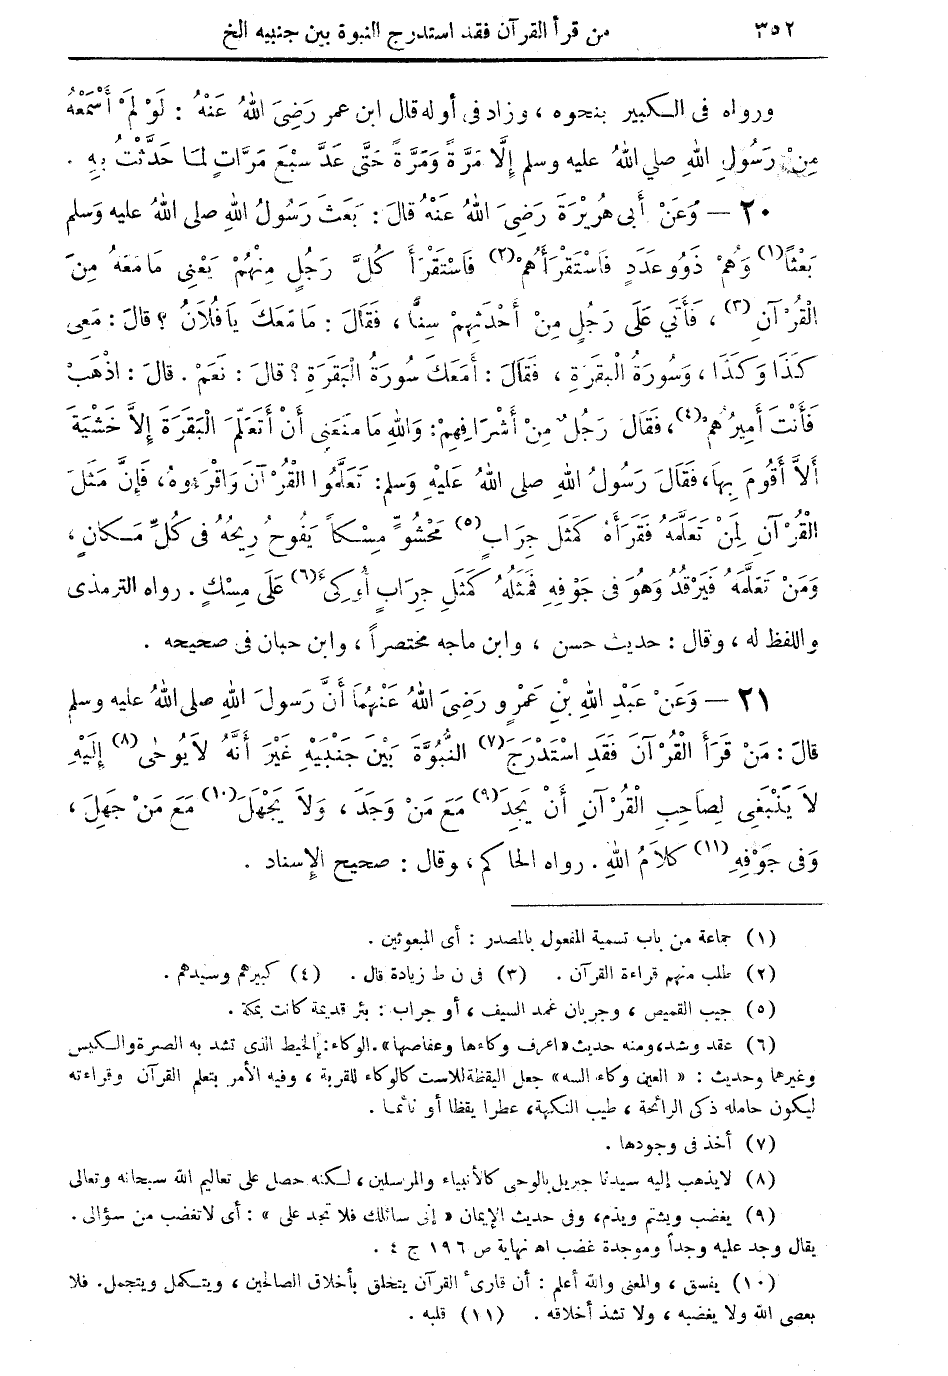 ٣٥٢ من قرأ القرآن فقد استدرج النبوة بين جنبيه الخ
ورواه فى الكبير بنحوه ، وزاد فى أوله قال ابن عمر رَضِىَ اللهُ عَنْهُ : لَوْ لَمْ أَسْمَعْهُ
مِنْ رَسُولِ اللهِ صلى اللهُ عليه وسلم إِلَّا مَرَّةً وَمَرَّةً حَتَّى عَدَّ سَبْعَ مَرَّاتٍ لمَا حَدَّثْتُ بِهِ .
٢٠ — وَعَنْ أَبى هُرَيْرَةَ رَضِىَ اللهُ عَنْهُ قَالَ : بَعَثَ رَسُولُ اللهِ صلى اللهُ عليه وَسلم
بَعْثًا (١) وَهُمْ ذَوُو عَدَدٍ فَاسْتَقْرَأَهُمْ (٢) فَاسْتَقْرَأَ كُلَّ رَجُلٍ مِنْهُمْ يَعْنِى مَا مَعَهُ مِنَ
الْقُرْآنِ (٣) ، فَأَتَى عَلَى رَجُلٍ مِنْ أَحْدَثِهِمْ سِنًّا ، فَقَالَ : مَا مَعَكَ يَا فُلَانُ ؟ قالَ : مَعِى
كَذَا وَكَذَا ، وَسُورَةُ الْبَقَرَةِ ، فَقَالَ : أَمَعَكَ سُورَةُ الْبَقَرَةِ ؟ قالَ : نَعَمْ . قالَ : اذْهَبْ
فَأَنْتَ أَمِيرُهُمْ (٤) ، فَقَالَ رَجُلٌ مِنْ أَشْرَافِهِمْ : وَاللهِ مَا مَنَعَنِى أَنْ أَتَعَلَّمَ الْبَقَرَةَ إِلاَّ خَشْيَةَ
أَلاَّ أَقُومَ بِهَا ، فَقَالَ رَسُولُ اللهِ صلى اللهُ عَلَيْهِ وَسلم : تَعَلَّمُوا الْقُرْآنَ وَاقْرَءُوهُ ، فَإِنَّ مَثَلَ
الْقُرْآنِ لِمَنْ تَعَلَّمَهُ فَقَرَأَهُ كَمَثَلِ جِرَابٍ (٥) مَحْشُوٍّ مِسْكاً يَفُوحُ رِيحُهُ فى كُلِّ مَكانٍ ،
وَمَنْ تَعَلَّمَهُ فَيَرْقُدُ وَهُوَ فى جَوْفِهِ فَمَثَلُهُ كَمَثَلِ جِرَابٍ أُوكِىَ (٦) عَلَى مِسْكٍ . رواه الترمذى
واللفظ له ، وقال : حديث حسن ، وابن ماجه مختصراً ، وابن حبان فى صحيحه .
٢١ — وَعَنْ عَبْدِ اللهِ بْنِ عَمْرٍو رَضِىَ اللهُ عَنْهُمَا أَنَّ رَسولَ اللهِ صلى اللهُ عليه وسلم
قالَ : مَنْ قَرَأَ الْقُرْآنَ فَقَدِ اسْتَدْرَجَ (٧) النُّبُوَّةَ بَيْنَ جَنْبَيْهِ غَيْرَ أَنَّهُ لاَ يُوحَى (٨) إِلَيْهِ
لاَ يَنْبَغِى لِصَاحِبِ الْقُرْآنِ أَنْ يَجِدَ (٩) مَعَ مَنْ وَجَدَ ، وَلاَ يَجْهَلَ (١٠) مَعَ مَنْ جَهِلَ ،
وَفى جَوْفِهِ (١١) كَلاَمُ اللهِ . رواه الحاكم ، وقال : صحيح الإسناد .
(١) جماعة من باب تسمية المفعول بالمصدر : أى المبعوثين .
(٢) طلب منهم قراءة القرآن . (٣) فى ن ط زيادة قال . (٤) كبيرهم وسيدهم .
(٥) جيب القميص ، وجربان غمد السيف ، أو جراب : بئر قديمة كانت بمكة .
(٦) عقد وشد، ومنه حديث «اعرف وكاءها وعفاصها». الوكاء: الخيط الذى تشد به الصرة والكيس
وغيرها وحديث : « العين وكاء السه » جعل اليقظة للاست كالوكاء للقربة ، وفيه الأمر بتعلم القرآن وقراءته
ليكون حامله ذكى الرائحة ، طيب النكهة، عطرا يقظا أو نائما .
(٧) أخذ فى وجودها .
(٨) لا يذهب إليه سيدنا جبريل بالوحى كالأنبياء والمرسلين ، لكنه حصل على تعاليم الله سبحانه وتعالى
(٩) يغضب ويشتم ويذم، وفى حديث الإيمان « إنى سائلك فلا تجد على » : أى لا تغضب من سؤالى .
يقال وجد عليه وجداً وموجدة غضب اه نهاية ص ١٩٦ ج ٤ .
(١٠) يفسق ، والمعنى والله أعلم : أن قارئ القرآن يتخلق بأخلاق الصالحين ، ويتكمل ويتجمل. فلا
يعصى الله ولا يغضبه ، ولا تشذ أخلاقه . (١١) قلبه .